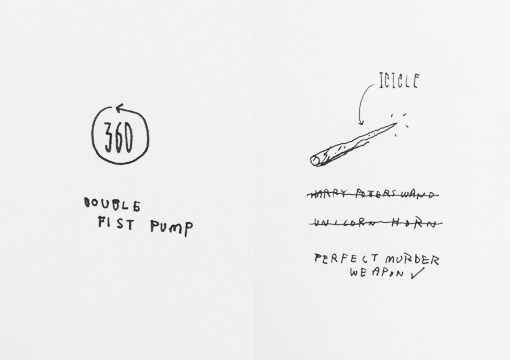 360
DOUBLE
FIST PUMP
ICICLE
HARRY POTERS WAND
UNICORN HORN
PERFECT MURDER
WEAPON ✓